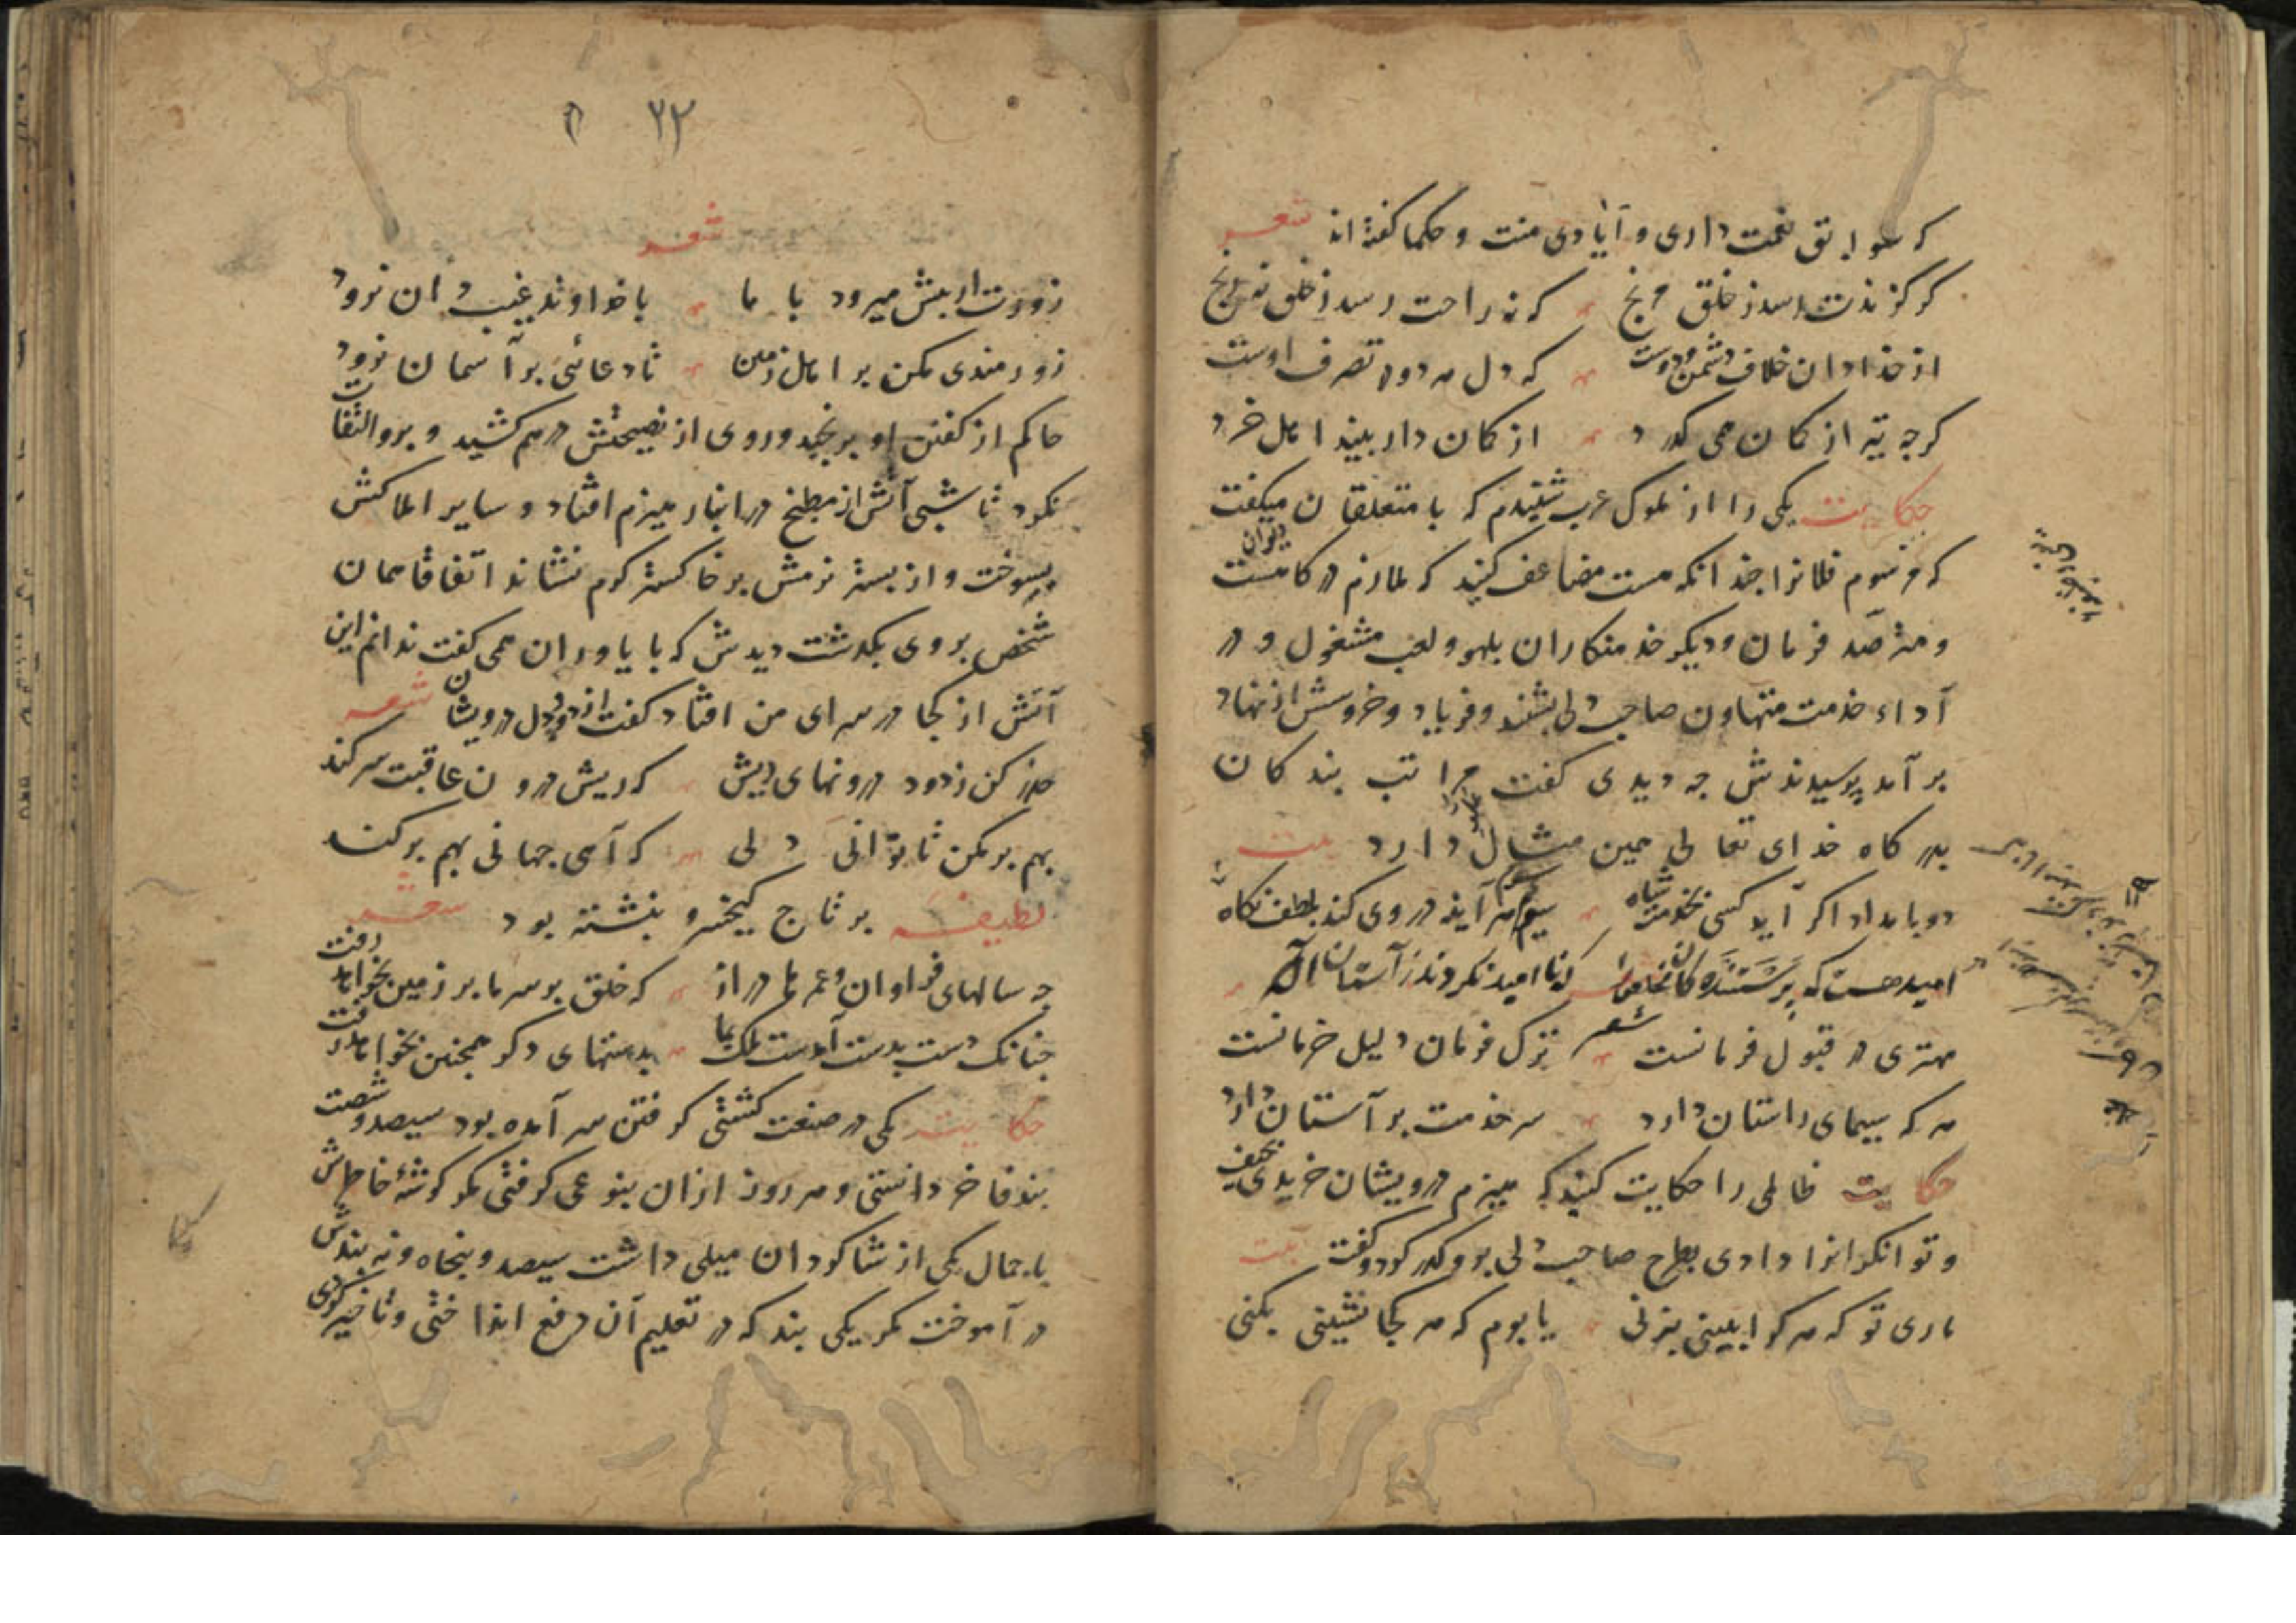 که سوابق نعمت داری و آیادی منت و حکما کفته اند شعر
کر کزندت رسد ز خلق مرنج که نه راحت رسد ز خلق نه رنج
از خدا دان خلاف دشمن و دوست که دل هر دو در تصرف اوست
کرجه تیر از کمان همی کذرد از کمان دار بیند اهل خرد
حکایت یکی را از ملوک عرب شنیدم که با متعلقان میکفت
که مرسوم فلانرا جندانکه هست مضاعف کنید که ملازم درکاهست
و مترصد فرمان و دیکر خدمتکاران بلهو و لعب مشغول و در
آداء خدمت متهاون صاحب دلی بشنید و فریاد و خروش از نهاد
بر آمد پرسیدندش جه دیدی کفت مراتب بندکان
بدرکاه خدای تعالی همین مثال دارد بیت
دو بامداد اکر آید کسی بخدمت شاه سیوم هر آینه در وی کند بلطف نکاه
امید هست که پرستندکان مخلص را که ناامید نکردند ز آستان اله
مهتری در قبول فرمانست شعر ترک فرمان دلیل حرمانست
هر که سیمای راستان دارد سر خدمت بر آستان دارد
حکایت ظالمی را حکایت کنند که هیزم درویشان خریدی بحیف
و توانکرانرا دادی بطرح صاحب دلی برو کذر کرد و کفت بیت
ماری تو که هر کرا ببینی بزنی یا بوم که هر کجا نشینی بکنی
۲۲
شعر
زورت ار بیش میرود با ما با خداوند غیب دان نرود
زورمندی مکن بر اهل زمین تا دعائی بر آسمان نرود
حاکم از کفتن او برنجید و روی از نصیحتش درهم کشید و برو التفات
نکرد تا شبی آتش از مطبخ در انبار هیزم افتاد و سایر املاکش
بسوخت و از بستر نرمش بر خاکستر کرم نشاند اتفاقا همان
شخص بروی بکذشت دیدش که با یاوران همی کفت ندانم این
آتش از کجا در سرای من افتاد کفت از دود دل درویشان شعر
حذر کن ز دود درونهای ریش که ریش درون عاقبت سر کند
بهم بر مکن تا توانی دلی که آهی جهانی بهم بر کند
لطیفه بر تاج کیخسرو بنشته بود شعر
جه سالهای فراوان و عمرها دراز که خلق بر سر ما بر زمین بخواهد رفت
جنانک دست بدست آمدست ملک بما بدستهای دکر همجنین بخواهد رفت
حکایت یکی در صنعت کشتی کرفتن سر آمده بود سیصد و شصت
بند فاخر دانستی و هر روز ازان بنوعی کرفتی مکر کوشهٔ خاطرش
با جمال یکی از شاکردان میلی داشت سیصد و پنجاه و نه بندش
در آموخت مکر یکی بند که در تعلیم آن دفع انداختی و تاخیر کردی